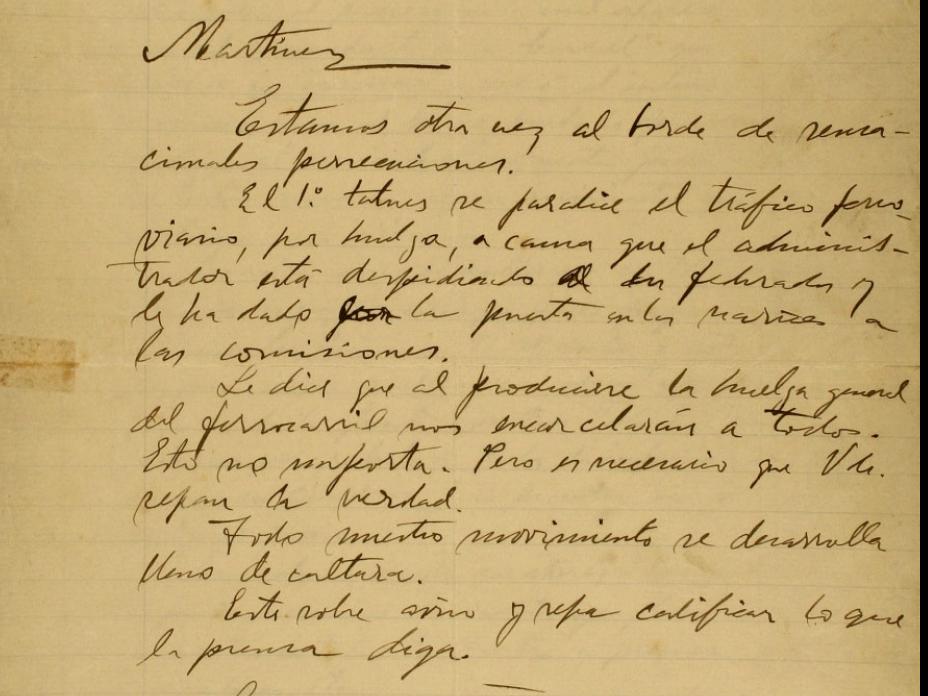 Martinez
Estamos otra vez al borde de sensa-
cionales persecuciones.
El 1º se paralice el tráfico ferro-
viario, por huelga, a causa que el adminis-
trador está despidiendo a los federados y
le ha dado la puerta en las narices a
las comisiones.
Se dice que al producirse la huelga general
del ferrocarril nos encarcelarán a todos.
Esto no importa. Pero es necesario que Vds.
sepan la verdad.
Todo nuestro movimiento se desarrolla
lleno de cultura.
Este sobre aviso y sepa calificar lo que
la prensa diga.